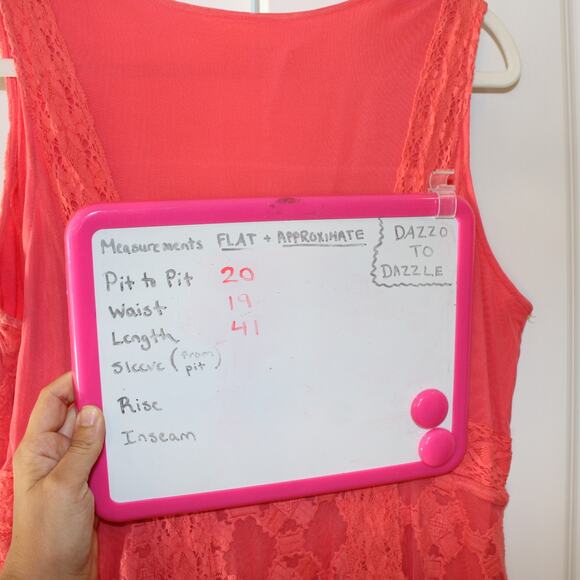 Measurements FLAT + APPROXIMATE
DAZZO
TO
DAZZLE
Pit to Pit 20
Waist 19
Length 41
Sleeve (from pit)
Rise
Inseam